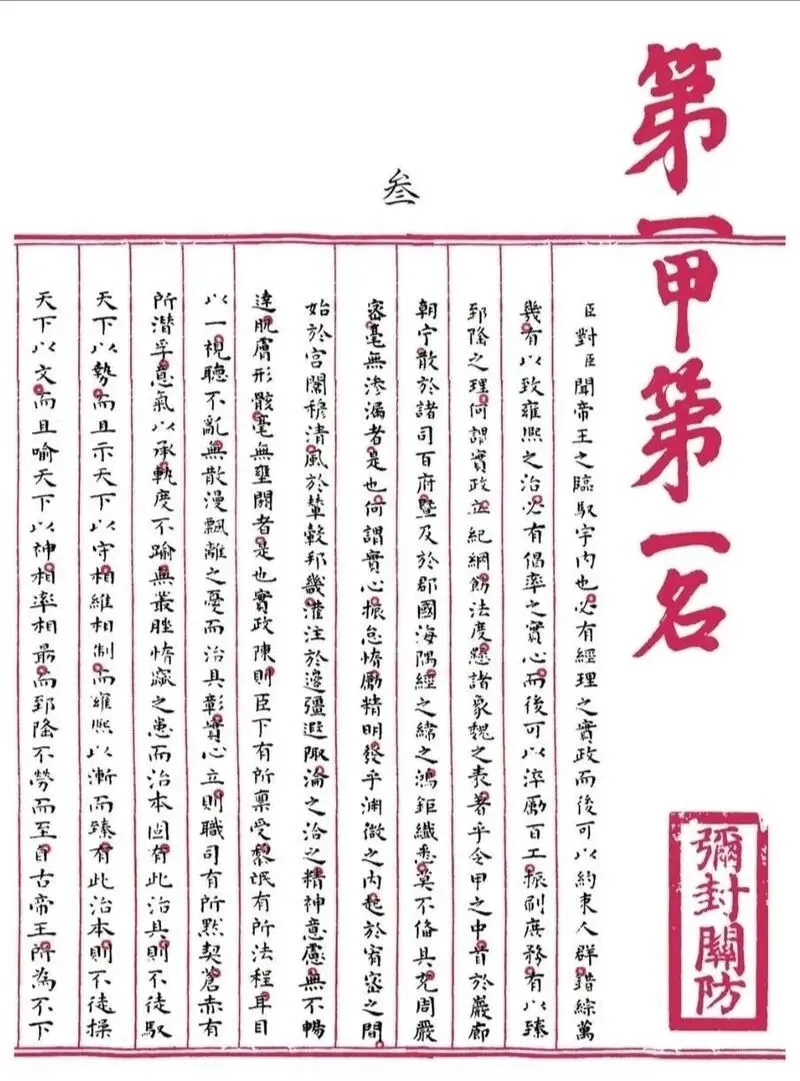 第一甲第一名
彌封關防
叁
臣對臣聞帝王之臨馭宇内也必有經理之實政而後可以約束人群錯綜萬
幾有以致雍熙之治必有倡率之實心而後可以淬勵百工振刷庶務有以臻
郅隆之理何謂實政立紀綱飭法度懸諸象魏之表著乎令甲之中首於巖廊
朝宁散於諸司百府暨及於郡國海隅經之緯之鴻鉅纖悉莫不備具充周嚴
密毫無滲漏者是也何謂實心振怠惰勵精明發乎淵微之内起於宥密之間
始於宫闈穆清風於輦轂邦畿灌注於邊疆遐陬淪之洽之精神意慮無不暢
達肌膚形骸毫無壅閼者是也實政陳則臣下有所禀受黎氓有所法程耳目
以一視聽不亂無散漫飄離之憂而治具彰實心立則職司有所默契蒼赤有
所潜孚意氣以承軌度不踰無叢脞惰窳之患而治本固有此治具則不徒馭
天下以勢而且示天下以守相維相制而雍熙以漸而臻有此治本則不徒操
天下以文而且喻天下以神相率相最而郅隆不勞而至自古帝王所為不下